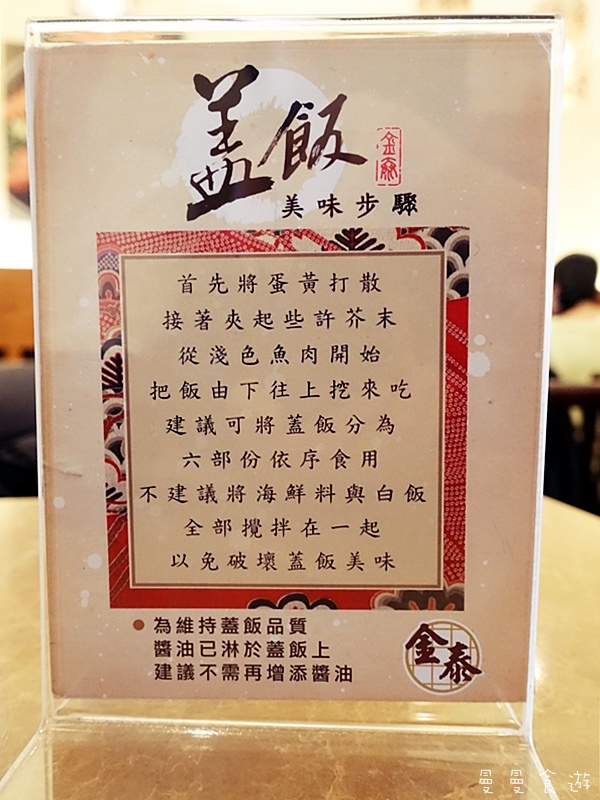 盖飯
金泰
美味步驟
首先將蛋黃打散
接著夾起些許芥末
從淺色魚肉開始
把飯由下往上挖來吃
建議可將蓋飯分為
六部份依序食用
不建議將海鮮料與白飯
全部攪拌在一起
以免破壞蓋飯美味
為維持蓋飯品質
醬油已淋於蓋飯上
建議不需再增添醬油
金泰
曼曼食遊